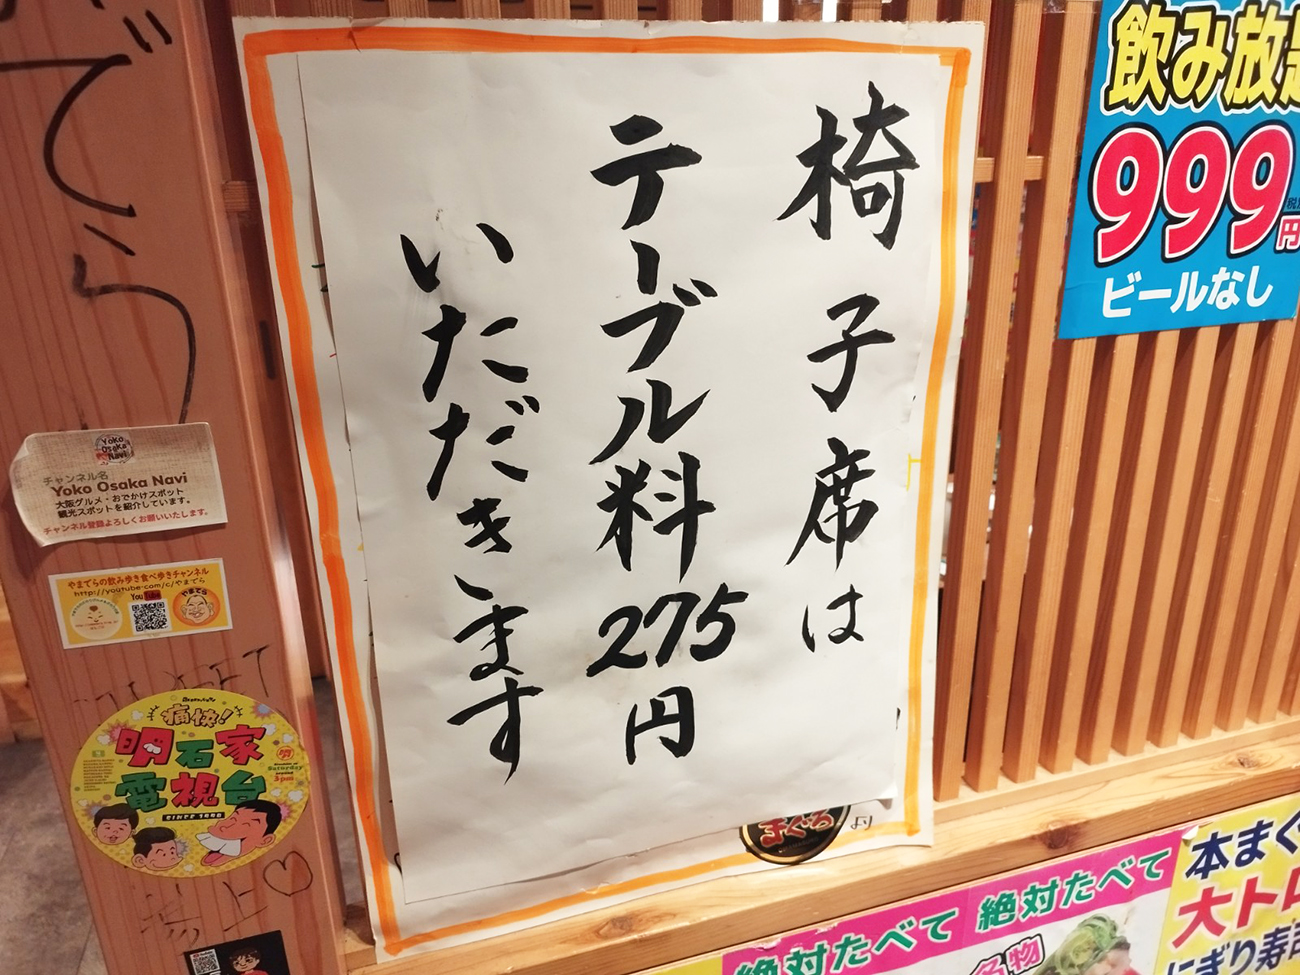 椅子席は
テーブル料275円
いただきます
飲み放題
999円
ビールなし
でら
Yoko
Osaka
Navi
チャンネル名
Yoko Osaka Navi
大阪グルメ・おでかけスポット
観光スポットを紹介しています。
チャンネル登録よろしくお願いいたします。
やまでらの飲み歩き食べ歩きチャンネル
http://youtube.com/c/やまでら
YouTube
やまでら
痛快!
明石家
電視台
SINCE 1990
Saturday
3pm
まぐろ
絶対たべて 絶対たべて
名物
本まぐ
大トロ
にぎり寿司